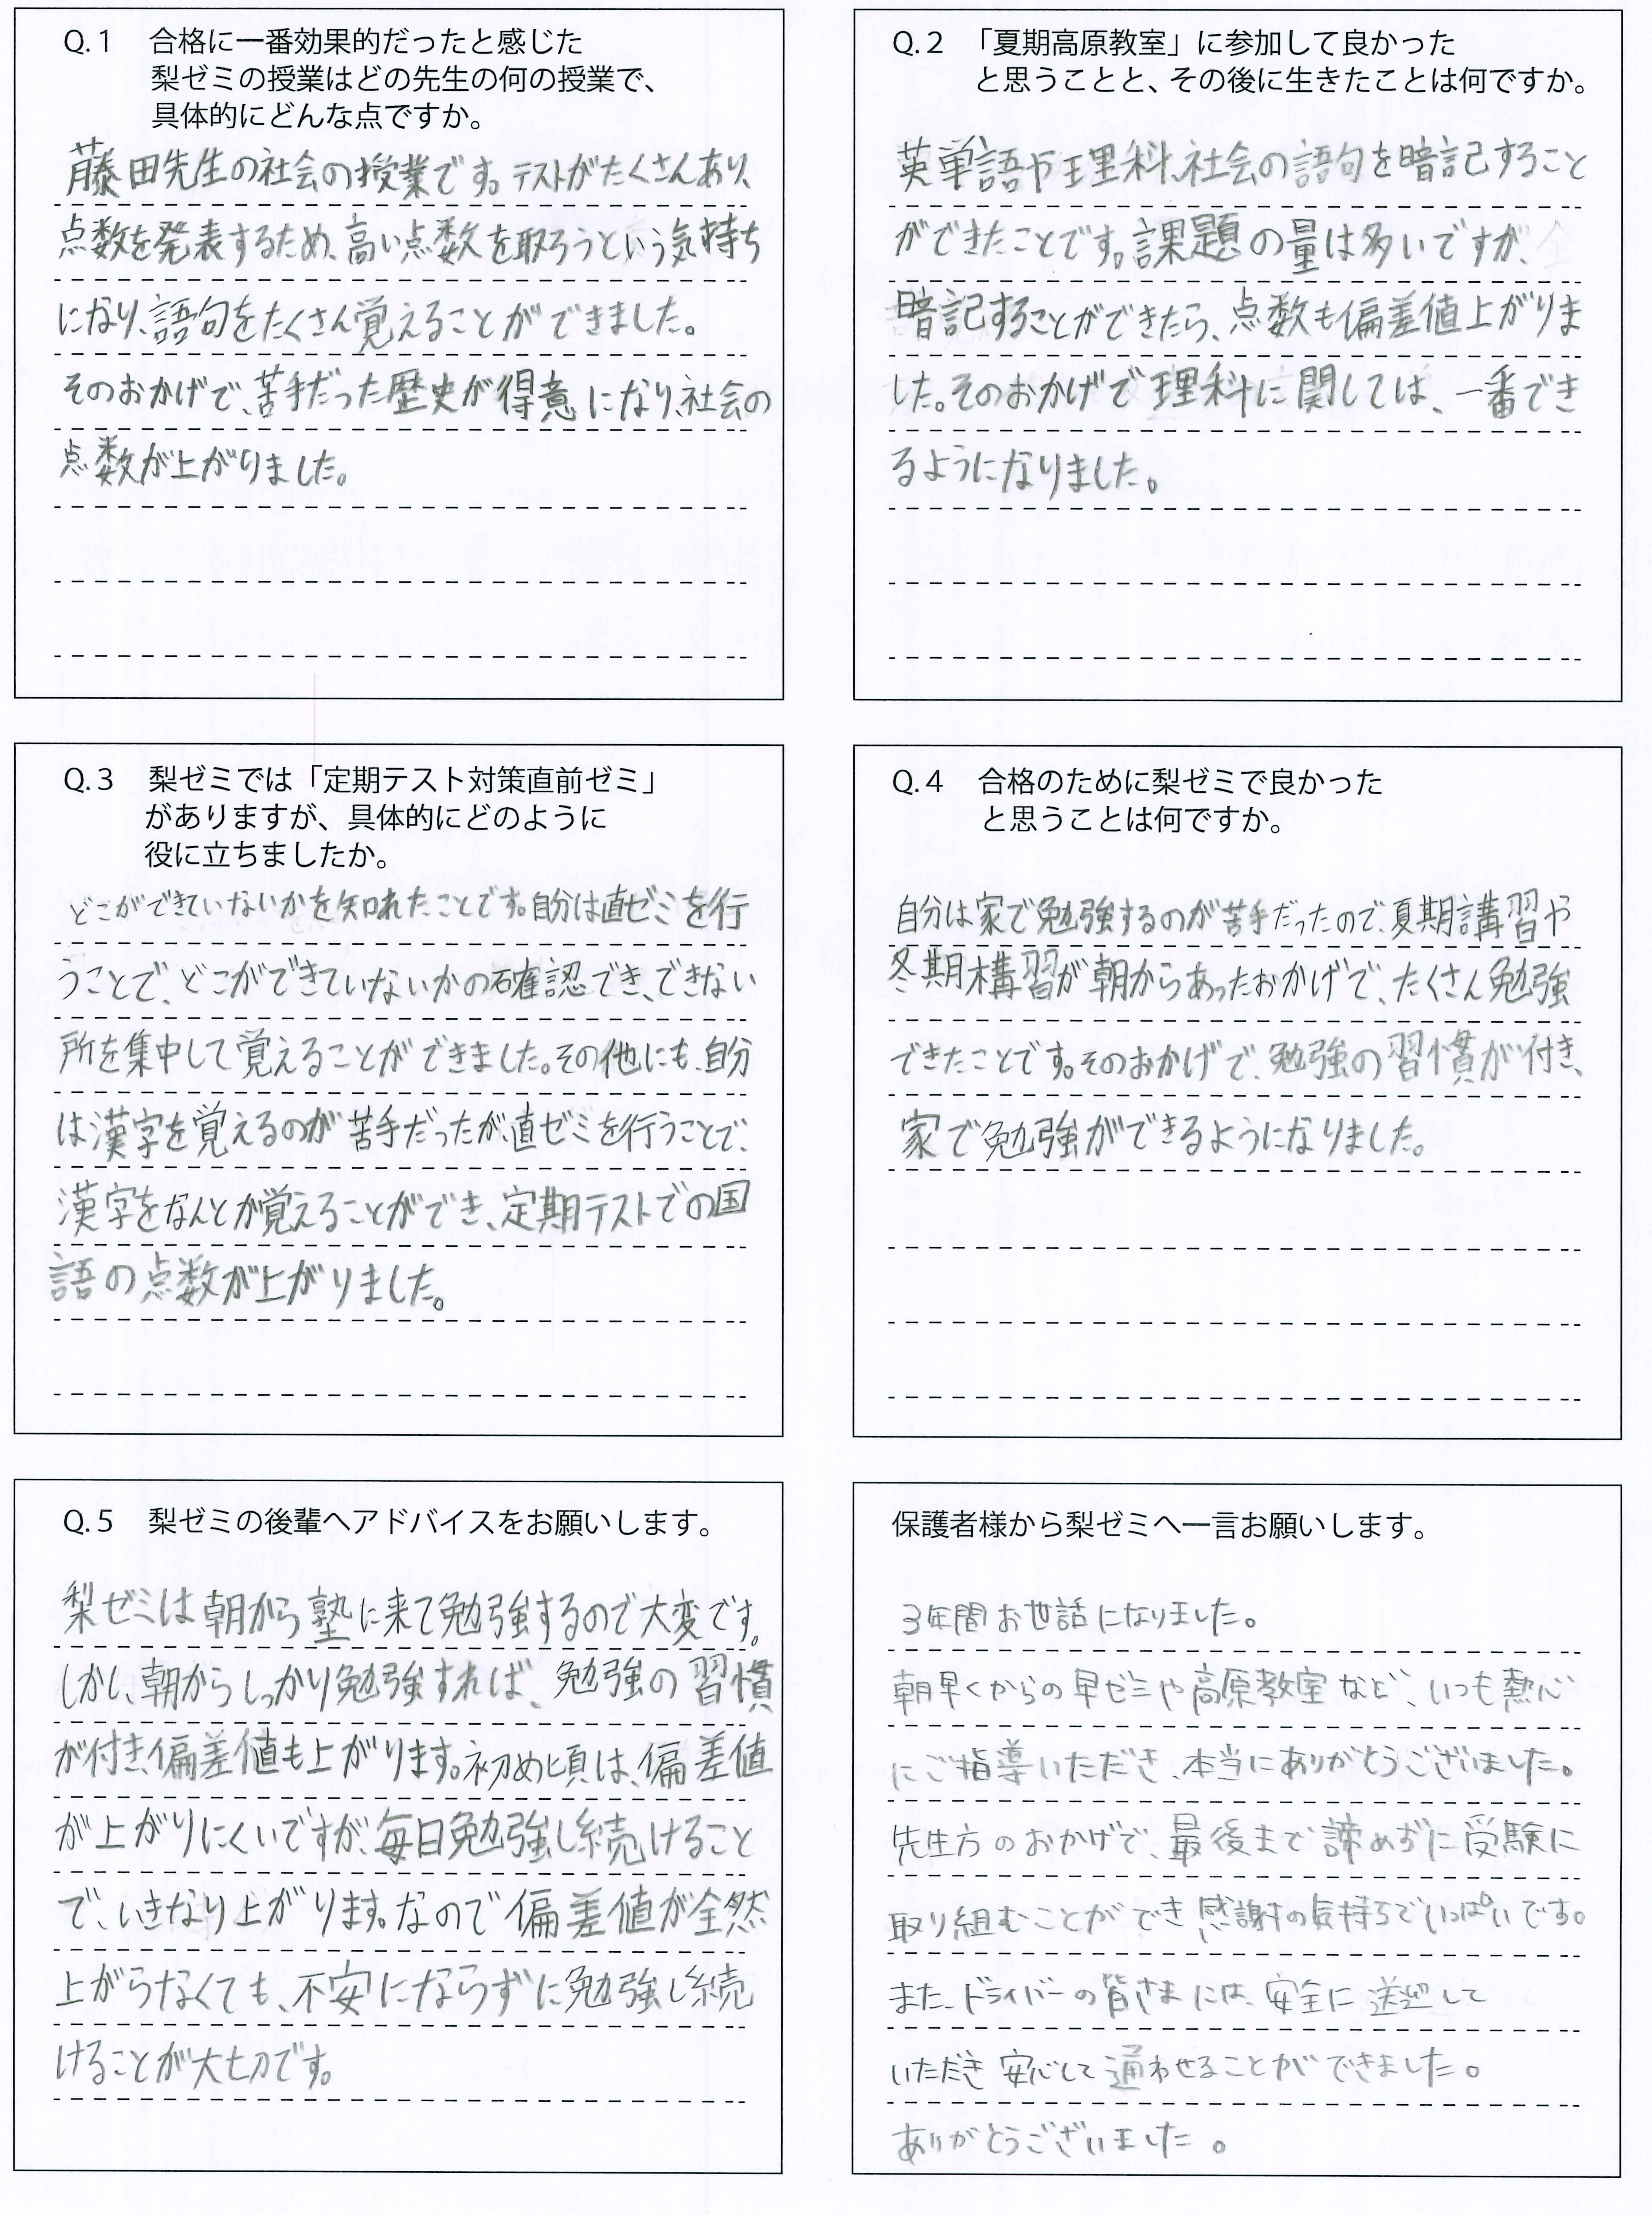 Q.1 合格に一番効果的だったと感じた
梨ゼミの授業はどの先生の何の授業で、
具体的にどんな点ですか。
藤田先生の社会の授業です。テストがたくさんあり、
点数を発表するため、高い点数を取ろうという気持ち
になり、語句をたくさん覚えることができました。
そのおかげで、苦手だった歴史が得意になり、社会の
点数が上がりました。
Q.2 「夏期高原教室」に参加して良かった
と思うことと、その後に生きたことは何ですか。
英単語や理科、社会の語句を暗記すること
ができたことです。課題の量は多いですが、
暗記することができたら、点数も偏差値上がりま
した。そのおかげで理科に関しては、一番でき
るようになりました。
Q.3 梨ゼミでは「定期テスト対策直前ゼミ」
がありますが、具体的にどのように
役に立ちましたか。
どこができていないかを知れたことです。自分は直ゼミを行
うことで、どこができていないかの確認でき、できない
所を集中して覚えることができました。その他にも、自分
は漢字を覚えるのが苦手だったが、直ゼミを行うことで、
漢字をなんとか覚えることができ、定期テストでの国
語の点数が上がりました。
Q.4 合格のために梨ゼミで良かった
と思うことは何ですか。
自分は家で勉強するのが苦手だったので、夏期講習や
冬期構習が朝からあったおかげで、たくさん勉強
できたことです。そのおかげで、勉強の習慣が付き、
家で勉強ができるようになりました。
Q.5 梨ゼミの後輩へアドバイスをお願いします。
梨ゼミは朝から塾に来て勉強するので大変です。
しかし、朝からしっかり勉強すれば、勉強の習慣
が付き、偏差値も上がります。初め頃は、偏差値
が上がりにくいですが、毎日勉強し続けること
で、いきなり上がります。なので偏差値が全然
上がらなくても、不安にならずに勉強し続
けることが大切です。
保護者様から梨ゼミへ一言お願いします。
3年間お世話になりました。
朝早くからの早ゼミや高原教室など、いつも熱心
にご指導いただき、本当にありがとうございました。
先生方のおかげで、最後まで諦めずに受験に
取り組むことができ感謝の気持ちでいっぱいです。
また、ドライバーの皆さまには、安全に送迎して
いただき安心して通わせることができました。
ありがとうございました。